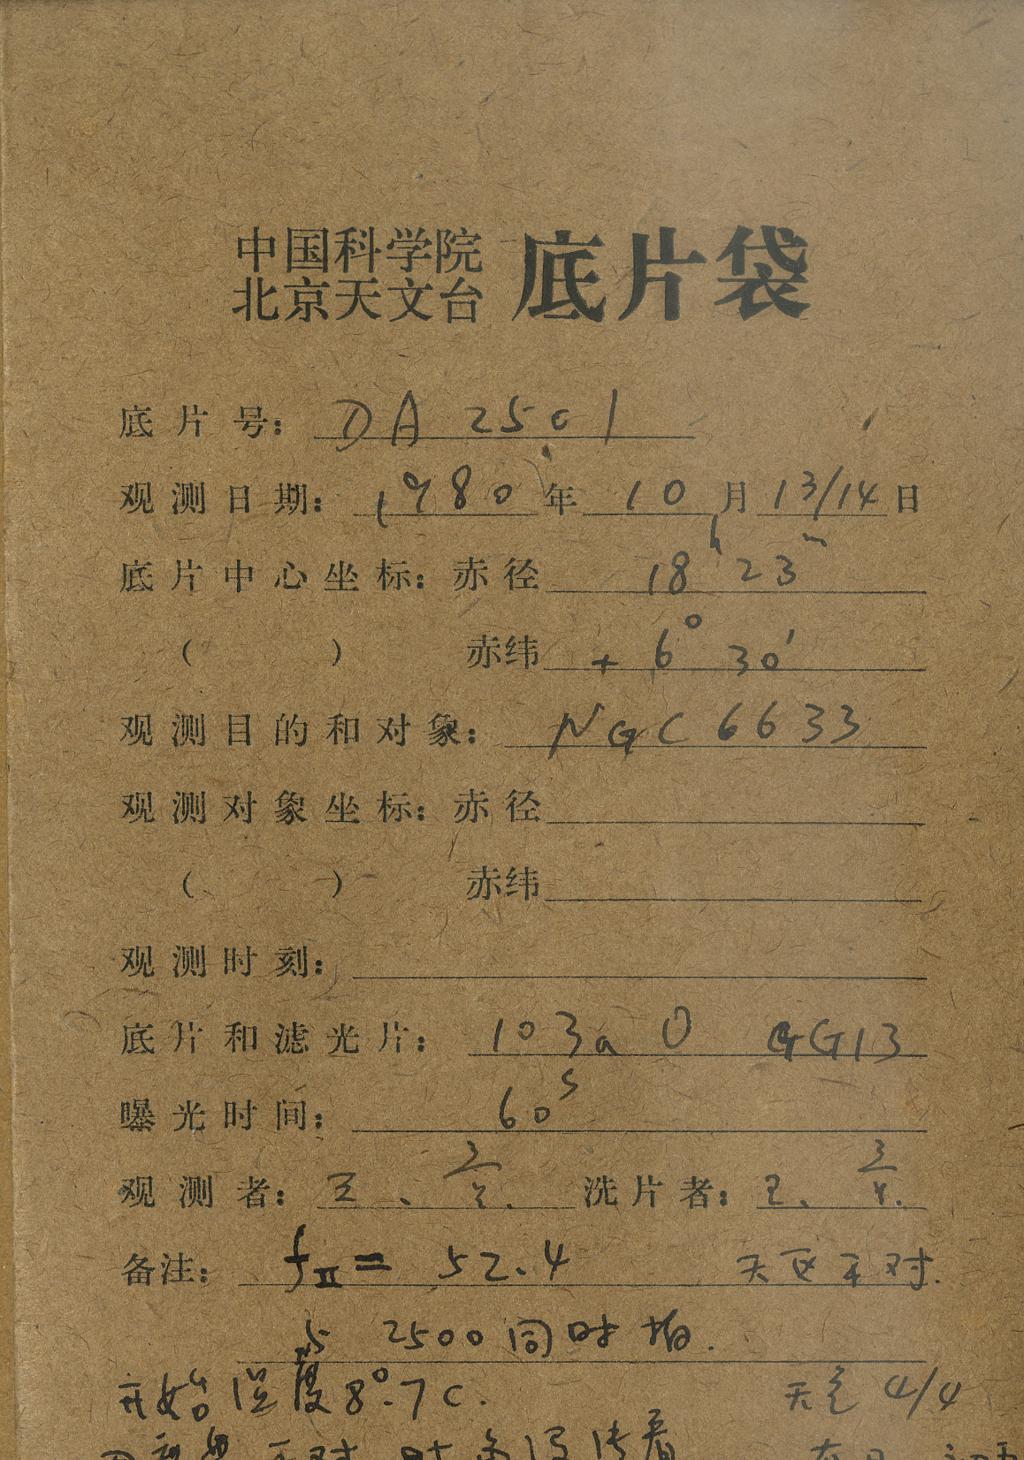 中国科学院
北京天文台
底片袋
底片号: DA 2501
观测日期: 1980 年 10 月 13/14 日
底片中心坐标: 赤径 18ʰ 23ᵐ
( ) 赤纬 + 6° 30′
观测目的和对象: NGC 6633
观测对象坐标: 赤径
( ) 赤纬
观测时刻:
底片和滤光片: 103a O GG13
曝光时间: 60ˢ
观测者: 王、 洗片者: 王、
备注: fII = 52.4 天区不对.
与 2500 同时拍.
开始温度 8°.7C. 天色 4/4
不对